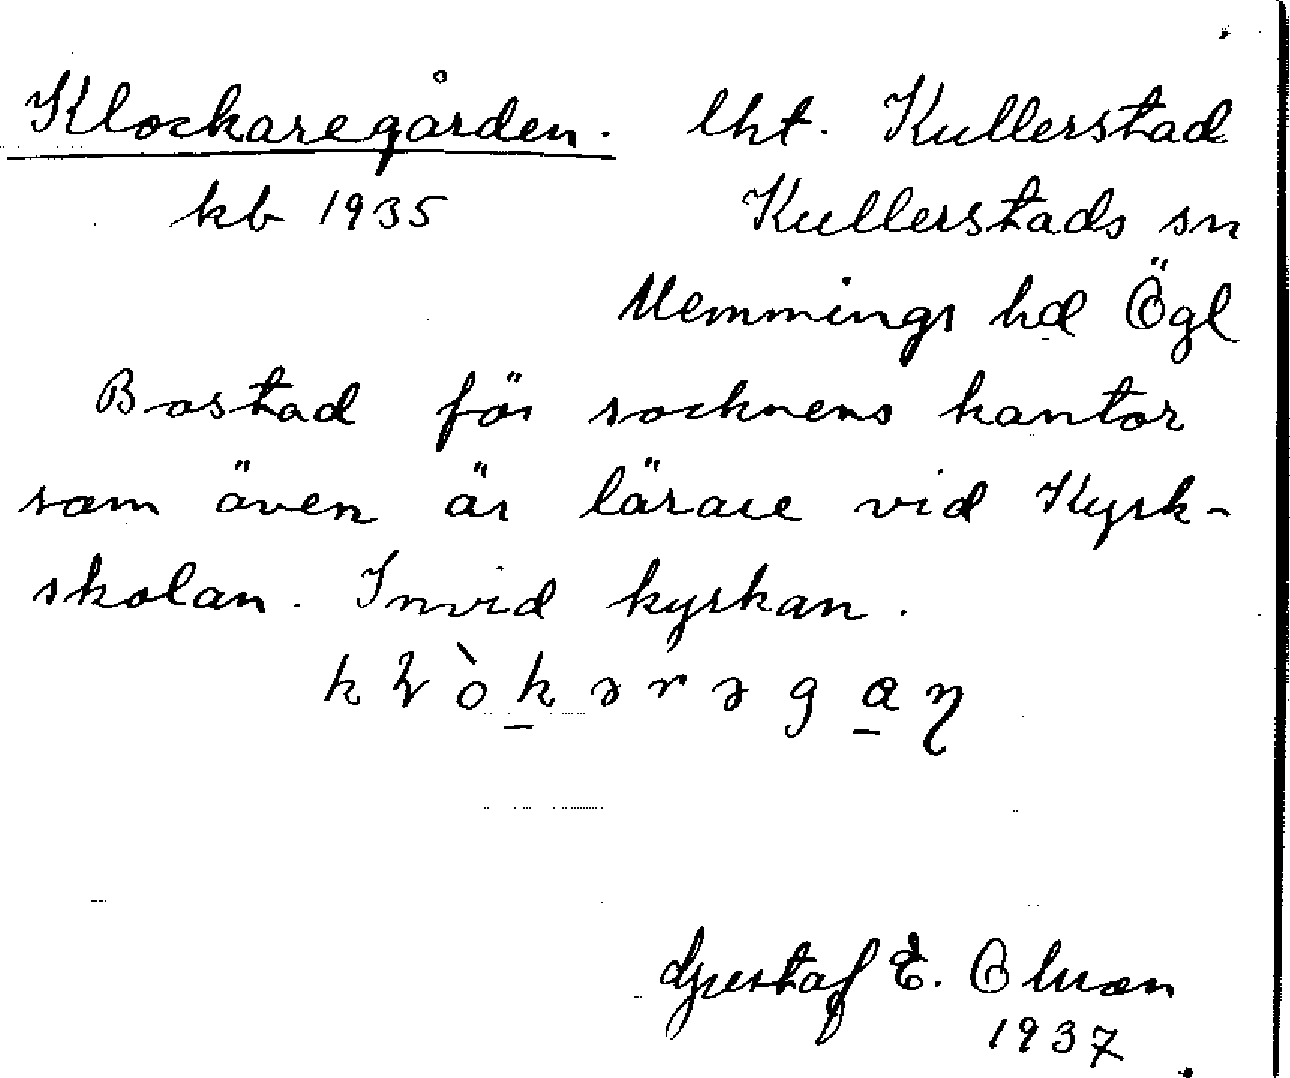 Klockaregården. lht. Kullerstad
kb 1935 Kullerstads sn
Memmings hd Ögl
Bostad för socknens kantor
som även är lärare vid Kyrk-
skolan. Invid kyrkan.
Gustaf E. Olson
1937